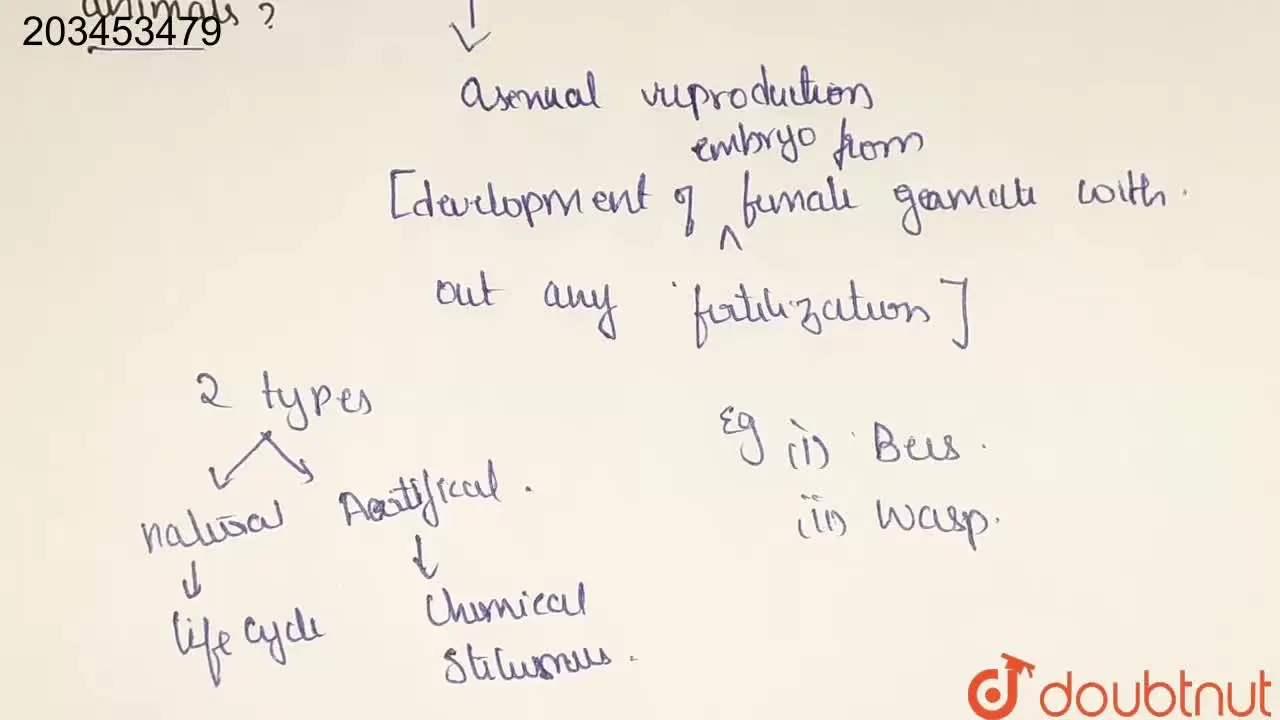 animals ?
203453479
asexual reproduction
embryo from
[development of ^ female gamete with
out any fertilization]
2 types
natural Aartifical.
life cycle
Chemical
Stilumus.
Eg (i) Bees.
(ii) wasp.
doubtnut